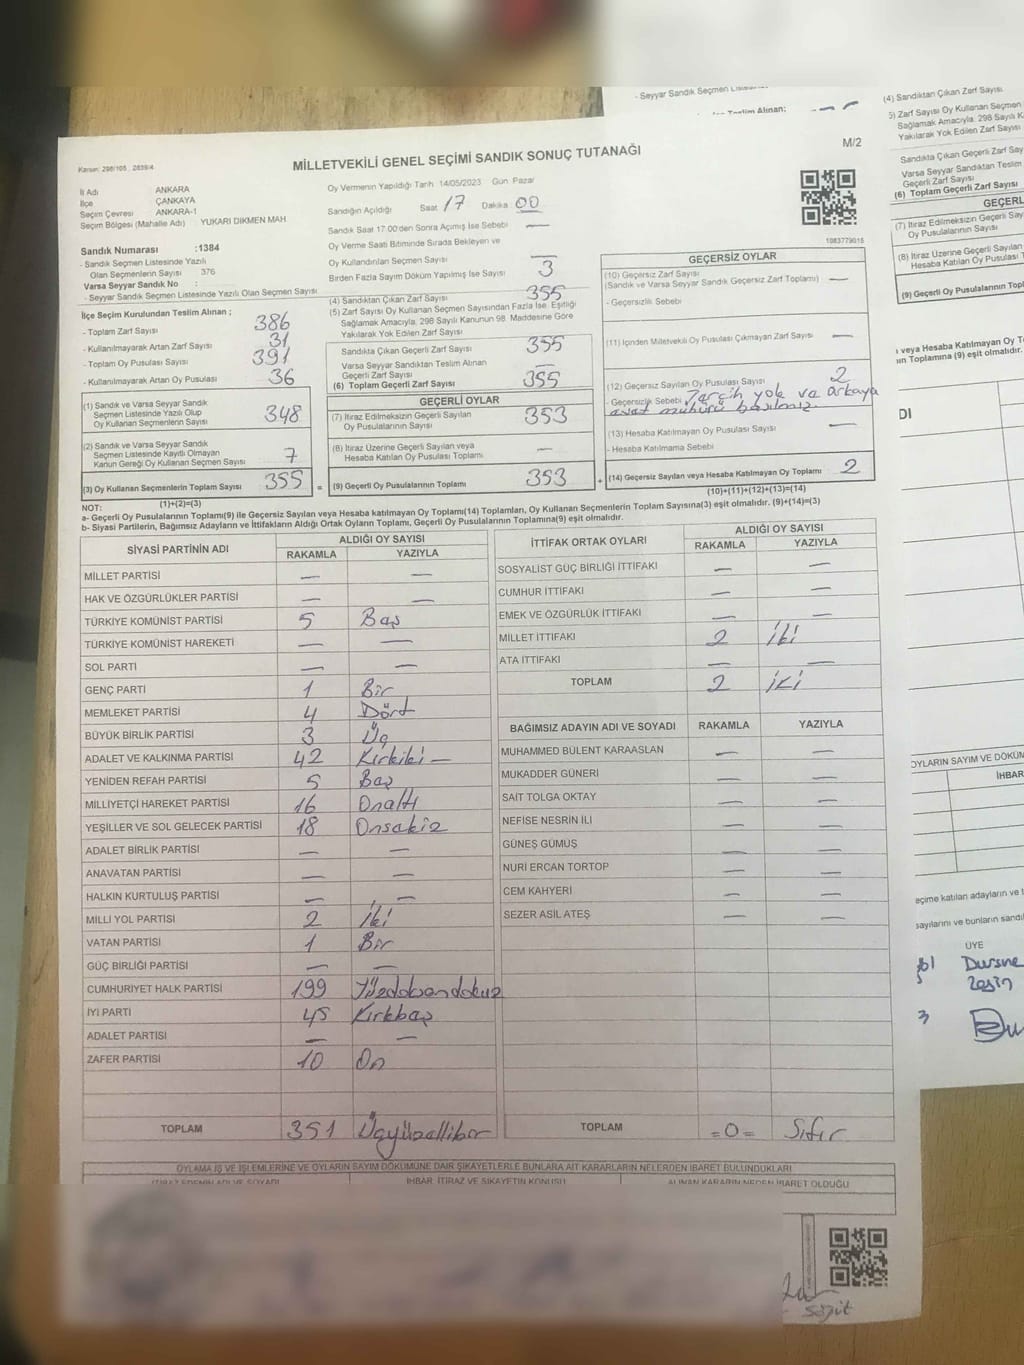 - Seyyar Sandık Seçmen
M/2
Kanun: 298/105, 2839/4
MİLLETVEKİLİ GENEL SEÇİMİ SANDIK SONUÇ TUTANAĞI
İl Adı ANKARA
İlçe ÇANKAYA
Seçim Çevresi ANKARA-1
Seçim Bölgesi (Mahalle Adı) YUKARI DİKMEN MAH.
Sandık Numarası :1384
- Sandık Seçmen Listesinde Yazılı
Olan Seçmenlerin Sayısı 376
Varsa Seyyar Sandık No :
- Seyyar Sandık Seçmen Listesinde Yazılı Olan Seçmen Sayısı
Oy Vermenin Yapıldığı Tarih 14/05/2023 Gün Pazar
Sandığın Açıldığı Saat 17 Dakika 00
Sandık Saat 17:00'den Sonra Açılmış İse Sebebi —
Oy Verme Saati Bitiminde Sırada Bekleyen ve
Oy Kullandırılan Seçmen Sayısı —
Birden Fazla Sayım Döküm Yapılmış İse Sayısı 3
1983779015
İlçe Seçim Kurulundan Teslim Alınan ;
- Toplam Zarf Sayısı 386
- Kullanılmayarak Artan Zarf Sayısı 31
- Toplam Oy Pusulası Sayısı 391
- Kullanılmayarak Artan Oy Pusulası 36
(1) Sandık ve Varsa Seyyar Sandık
Seçmen Listesinde Yazılı Olup
Oy Kullanan Seçmenlerin Sayısı 348
(2) Sandık ve Varsa Seyyar Sandık
Seçmen Listesinde Kayıtlı Olmayan
Kanun Gereği Oy Kullanan Seçmen Sayısı 7
(3) Oy Kullanan Seçmenlerin Toplam Sayısı 355 =
(1)+(2)=(3)
(4) Sandıktan Çıkan Zarf Sayısı 355
(5) Zarf Sayısı Oy Kullanan Seçmen Sayısından Fazla İse, Eşitliği
Sağlamak Amacıyla, 298 Sayılı Kanunun 98. Maddesine Göre
Yakılarak Yok Edilen Zarf Sayısı
Sandıkta Çıkan Geçerli Zarf Sayısı 355
Varsa Seyyar Sandıktan Teslim Alınan
Geçerli Zarf Sayısı —
(6) Toplam Geçerli Zarf Sayısı 355
GEÇERLİ OYLAR
(7) İtiraz Edilmeksizin Geçerli Sayılan
Oy Pusulalarının Sayısı 353
(8) İtiraz Üzerine Geçerli Sayılan veya
Hesaba Katılan Oy Pusulası Toplamı —
(9) Geçerli Oy Pusulalarının Toplamı 353 +
GEÇERSİZ OYLAR
(10) Geçersiz Zarf Sayısı
(Sandık ve Varsa Seyyar Sandık Geçersiz Zarf Toplamı) —
- Geçersizlik Sebebi
(11) İçinden Milletvekili Oy Pusulası Çıkmayan Zarf Sayısı —
(12) Geçersiz Sayılan Oy Pusulası Sayısı 2
- Geçersizlik Sebebi Tercih yok ve arkaya
evet mühürü basılmış.
(13) Hesaba Katılmayan Oy Pusulası Sayısı —
- Hesaba Katılmama Sebebi
(14) Geçersiz Sayılan veya Hesaba Katılmayan Oy Toplamı 2
(10)+(11)+(12)+(13)=(14)
NOT:
a- Geçerli Oy Pusulalarının Toplamı(9) ile Geçersiz Sayılan veya Hesaba katılmayan Oy Toplamı(14) Toplamları, Oy Kullanan Seçmenlerin Toplam Sayısına(3) eşit olmalıdır. (9)+(14)=(3)
b- Siyasi Partilerin, Bağımsız Adayların ve İttifakların Aldığı Ortak Oyların Toplamı, Geçerli Oy Pusulalarının Toplamına(9) eşit olmalıdır.
SİYASİ PARTİNİN ADI ALDIĞI OY SAYISI
RAKAMLA YAZIYLA
MİLLET PARTİSİ — —
HAK VE ÖZGÜRLÜKLER PARTİSİ — —
TÜRKİYE KOMÜNİST PARTİSİ 5 Beş
TÜRKİYE KOMÜNİST HAREKETİ — —
SOL PARTİ — —
GENÇ PARTİ 1 Bir
MEMLEKET PARTİSİ 4 Dört
BÜYÜK BİRLİK PARTİSİ 3 Üç
ADALET VE KALKINMA PARTİSİ 42 Kırkiki —
YENİDEN REFAH PARTİSİ 5 Beş
MİLLİYETÇİ HAREKET PARTİSİ 16 Onaltı
YEŞİLLER VE SOL GELECEK PARTİSİ 18 Onsekiz
ADALET BİRLİK PARTİSİ — —
ANAVATAN PARTİSİ — —
HALKIN KURTULUŞ PARTİSİ — —
MİLLİ YOL PARTİSİ 2 İki
VATAN PARTİSİ 1 Bir
GÜÇ BİRLİĞİ PARTİSİ — —
CUMHURİYET HALK PARTİSİ 199 Yüzdoksandokuz
İYİ PARTİ 45 Kırkbeş
ADALET PARTİSİ — —
ZAFER PARTİSİ 10 On
TOPLAM 351 Üçyüzellibir
İTTİFAK ORTAK OYLARI ALDIĞI OY SAYISI
RAKAMLA YAZIYLA
SOSYALİST GÜÇ BİRLİĞİ İTTİFAKI — —
CUMHUR İTTİFAKI — —
EMEK VE ÖZGÜRLÜK İTTİFAKI — —
MİLLET İTTİFAKI 2 İki
ATA İTTİFAKI — —
TOPLAM 2 İki
BAĞIMSIZ ADAYIN ADI VE SOYADI RAKAMLA YAZIYLA
MUHAMMED BÜLENT KARAASLAN — —
MUKADDER GÜNERİ — —
SAİT TOLGA OKTAY — —
NEFİSE NESRİN İLİ — —
GÜNEŞ GÜMÜŞ — —
NURİ ERCAN TORTOP — —
CEM KAHYERİ — —
SEZER ASİL ATEŞ — —
TOPLAM =0= Sıfır
OYLAMA İŞ VE İŞLEMLERİNE VE OYLARIN SAYIM DÖKÜMÜNE DAİR ŞİKAYETLERLE BUNLARA AİT KARARLARIN NELERDEN İBARET BULUNDUKLARI
İTİRAZ EDENİN ADI VE SOYADI İHBAR, İTİRAZ VE ŞİKAYETİN KONUSU ALINAN KARARIN NEDEN İBARET OLDUĞU
(4) Sandıktan Çıkan Zarf Sayısı
5) Zarf Sayısı Oy Kullanan Seçmen
Sağlamak Amacıyla, 298 Sayılı K
Yakılarak Yok Edilen Zarf Sayısı
Sandıkta Çıkan Geçerli Zarf Say
Varsa Seyyar Sandıktan Teslim
Geçerli Zarf Sayısı
(6) Toplam Geçerli Zarf Sayısı
GEÇERL
(7) İtiraz Edilmeksizin Geçerli Say
Oy Pusulalarının Sayısı
(8) İtiraz Üzerine Geçerli Sayılan
Hesaba Katılan Oy Pusulası T
(9) Geçerli Oy Pusulalarının Topl
veya Hesaba Katılmayan Oy T
ın Toplamına(9) eşit olmalıdır.
DI
OYLARIN SAYIM VE DÖKÜM
İHBAR
eçime katılan adayların ve
sayılarını ve bunların sandı
ÜYE